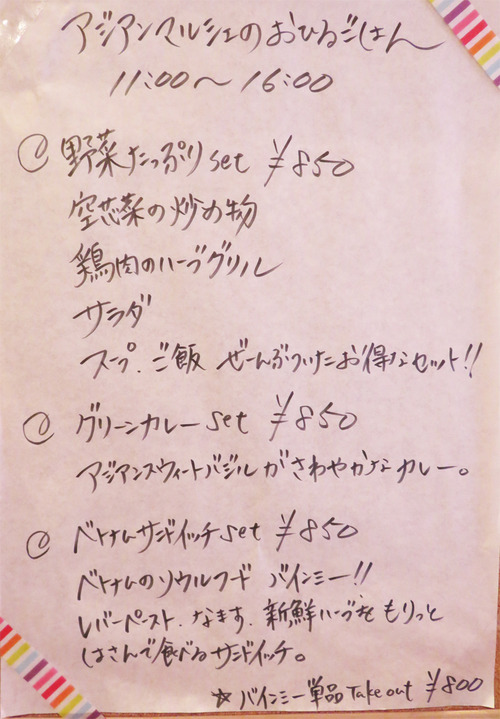 アジアンマルシェのおひるごはん
11:00〜16:00
野菜たっぷりset ¥850
空芯菜の炒め物
鶏肉のハーブグリル
サラダ
スープ、ご飯 ぜーんぶついたお得なセット!!
グリーンカレーset ¥850
アジアンスウィートバジルがさわやかなカレー。
ベトナムサンドイッチset ¥850
ベトナムのソウルフード バインミー!!
レバーペースト、なます、新鮮ハーブをもりっと
はさんで食べるサンドイッチ。
☆バインミー単品Take out ¥800